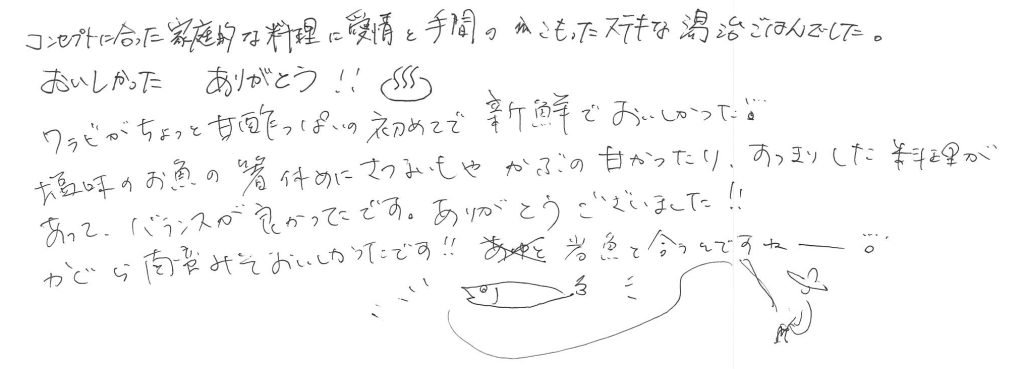 コンセプトに合った家庭的な料理に愛情と手間の こもったステキな湯治ごはんでした。
おいしかった ありがとう!! ♨
ワラビがちょっと甘酢っぱいの初めてで 新鮮でおいしかった!
塩味のお魚の箸休めにさつまいもやかぶの甘かったり、すっきりした料理が
あって、バランスが良かったです。ありがとうございました!!
かぐら南蛮みそおいしかったです!! 岩魚と合うんですねー!